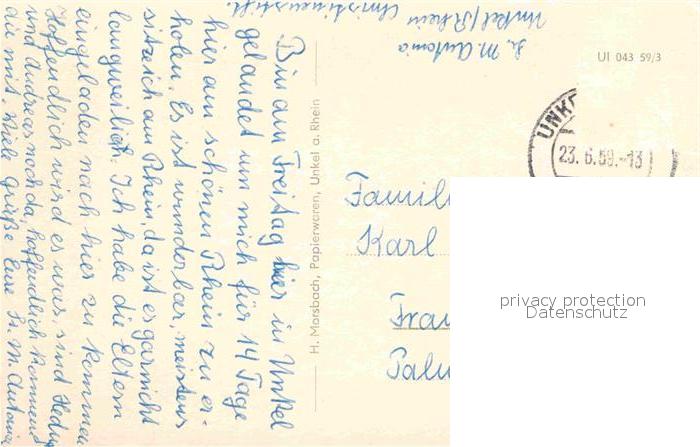 Sr. M. Antonia
Unkel/Rhein
Christinenstift.
Bin am Freitag hier in Unkel
gelandet um mich für 14 Tage
hier am schönen Rhein zu er-
holen. Es ist wunderbar, meistens
sitze ich am Rhein, da ist es garnicht
langweilich. Ich habe die Eltern
eingeladen nach hier zu kommen
Hoffendlich wird es was, sind Hedwig
und Andreas noch da, hoffendlich kommen
die mit. Viele Grüße Eure Sr. M. Antonia
H. Morsbach, Papierwaren, Unkel a. Rhein
UI 043 59/3
UNK
23.6.59.-13
Famili
Karl
Fra
Palm
privacy protection
Datenschutz